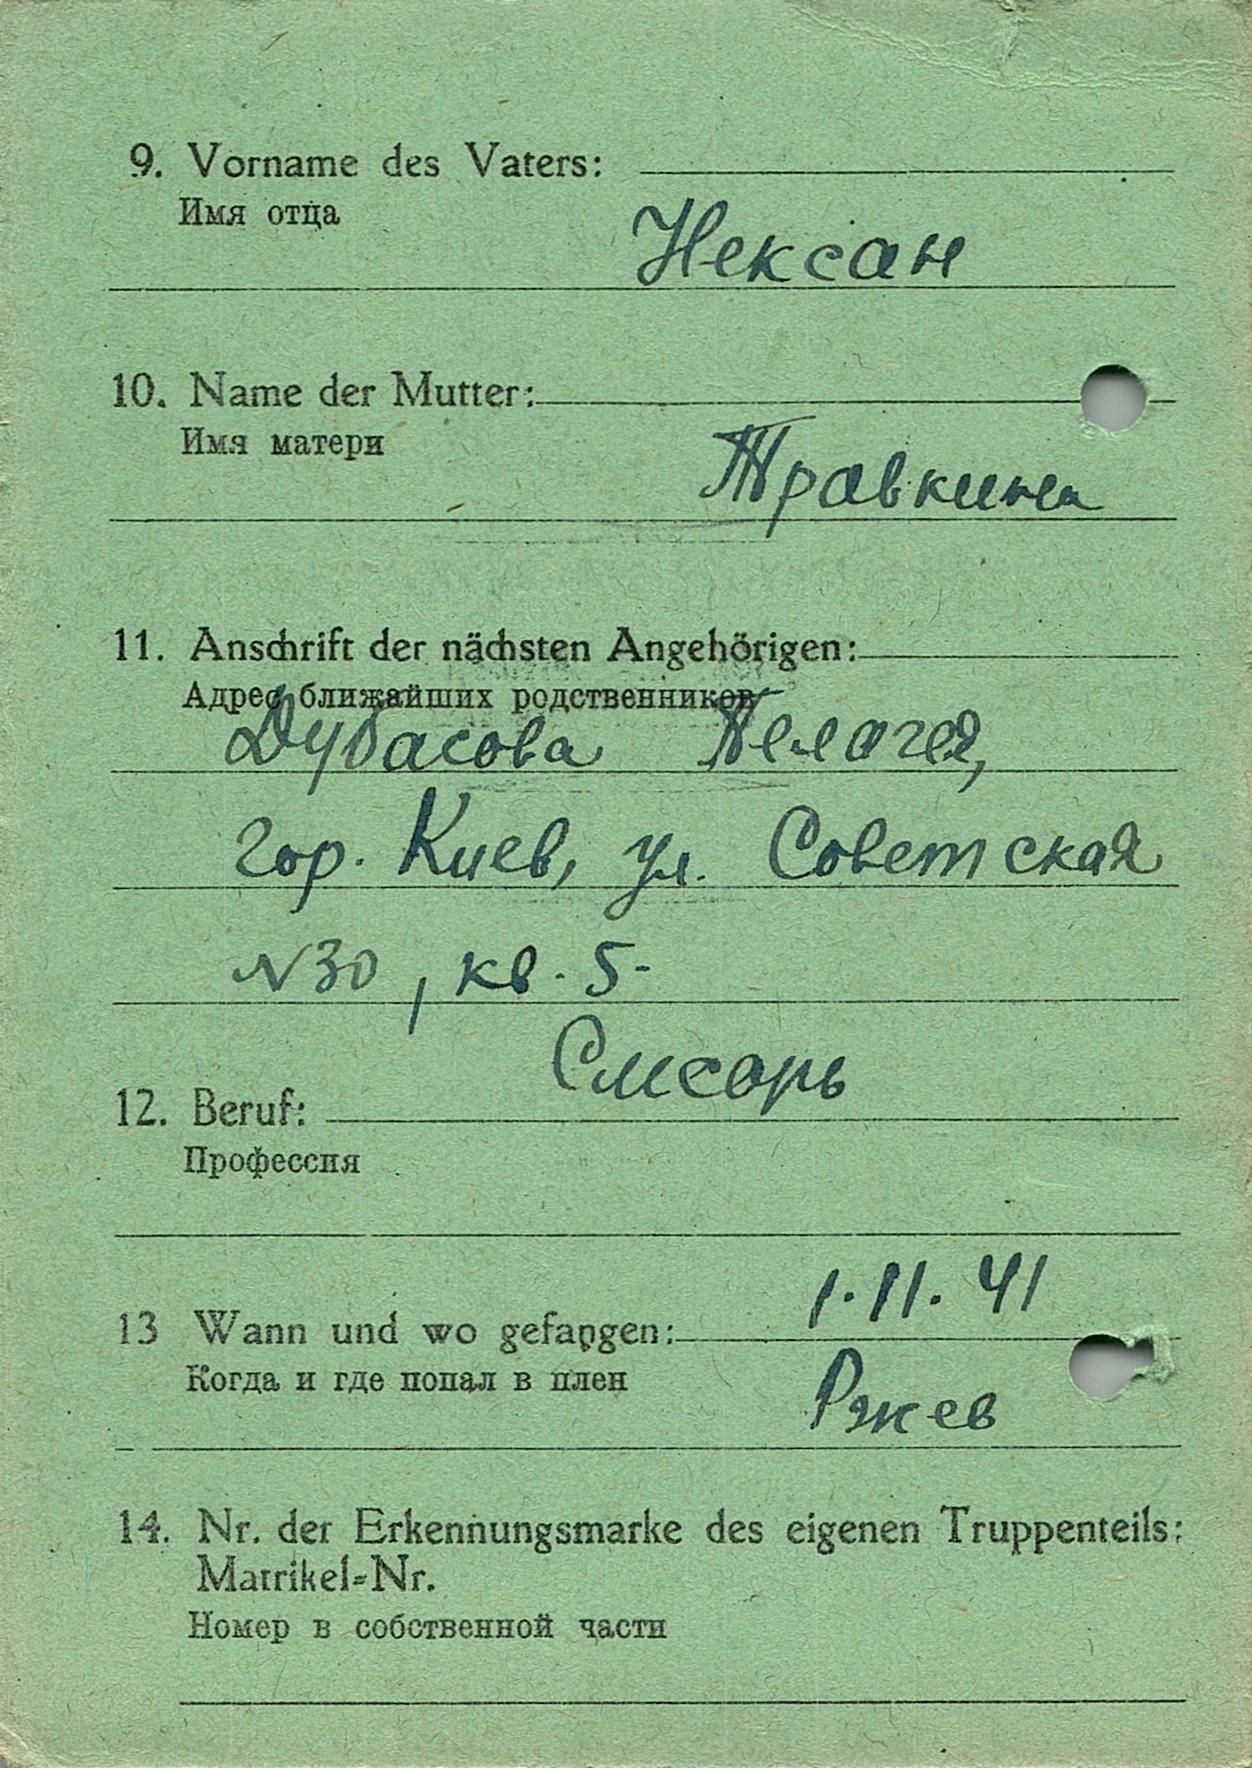 9. Vorname des Vaters:
Имя отца
Нексан
10. Name der Mutter:
Имя матери
Травкина
11. Anschrift der nächsten Angehörigen:
Адрес ближайших родственников
Дубасова Пелагея,
гор. Киев, ул. Советская
№30, кв. 5-
12. Beruf:
Слесарь
Профессия
13 Wann und wo gefangen:
1.11.41
Когда и где попал в плен
Ржев
14. Nr. der Erkennungsmarke des eigenen Truppenteils:
Matrikel-Nr.
Номер в собственной части